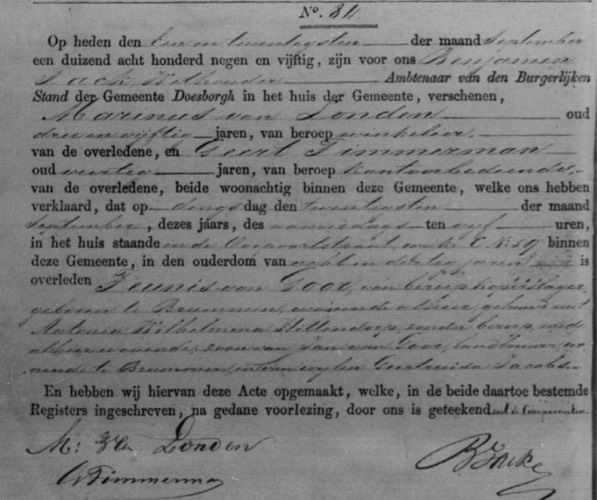 No. 84.
Op heden den Een en twentigsten der maand September
een duizend acht honderd negen en vijftig, zijn voor ons Benjamin
Wethouder Ambtenaar van den Burgerlijken
Stand der Gemeente Doesborgh in het huis der Gemeente, verschenen,
Marinus van Londen oud
drie en vijftig jaren, van beroep winkelier,
van de overledene, en Geert Timmerman
oud veertig jaren, van beroep kantoorbediende,
van de overledene, beide woonachtig binnen deze Gemeente, welke ons hebben
verklaard, dat op dings dag den twentigsten der maand
September, dezes jaars, des namiddags ten vijf uren,
in het huis staande in de wijk C No. 59 binnen
deze Gemeente, in den ouderdom van acht en dertig jaren is
overleden Teunis van Goor, van beroep koperslager,
geboren te Brummen, wonende alhier, gehuwd met
Antonia Wilhelmina zonder beroep, mede
alhier wonende, zoon van Jan van Goor, landbouwer, wo-
nende te Brummen, en van wijlen Jacobs.
En hebben wij hiervan deze Acte opgemaakt, welke, in de beide daartoe bestemde
Registers ingeschreven, na gedane voorlezing, door ons is geteekend met de Comparanten.
M: van Londen
G Timmerman